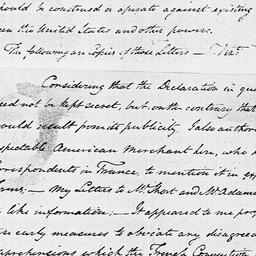 should be construed or operate against existing
een the United States and other powers.
The following are Copies of those Letters —
Considering that the Declaration in que
eed not be kept secret, but on the contrary that
ould result from its publicity I also authori
spectable American Merchant here, who
orrespondents in France, to mention it in ex
erms; — My Letters to Mr. Short and Mr. Adams
like information; — It appeared to me prop
early measures to obviate any disagreea
apprehensions which the French Convention